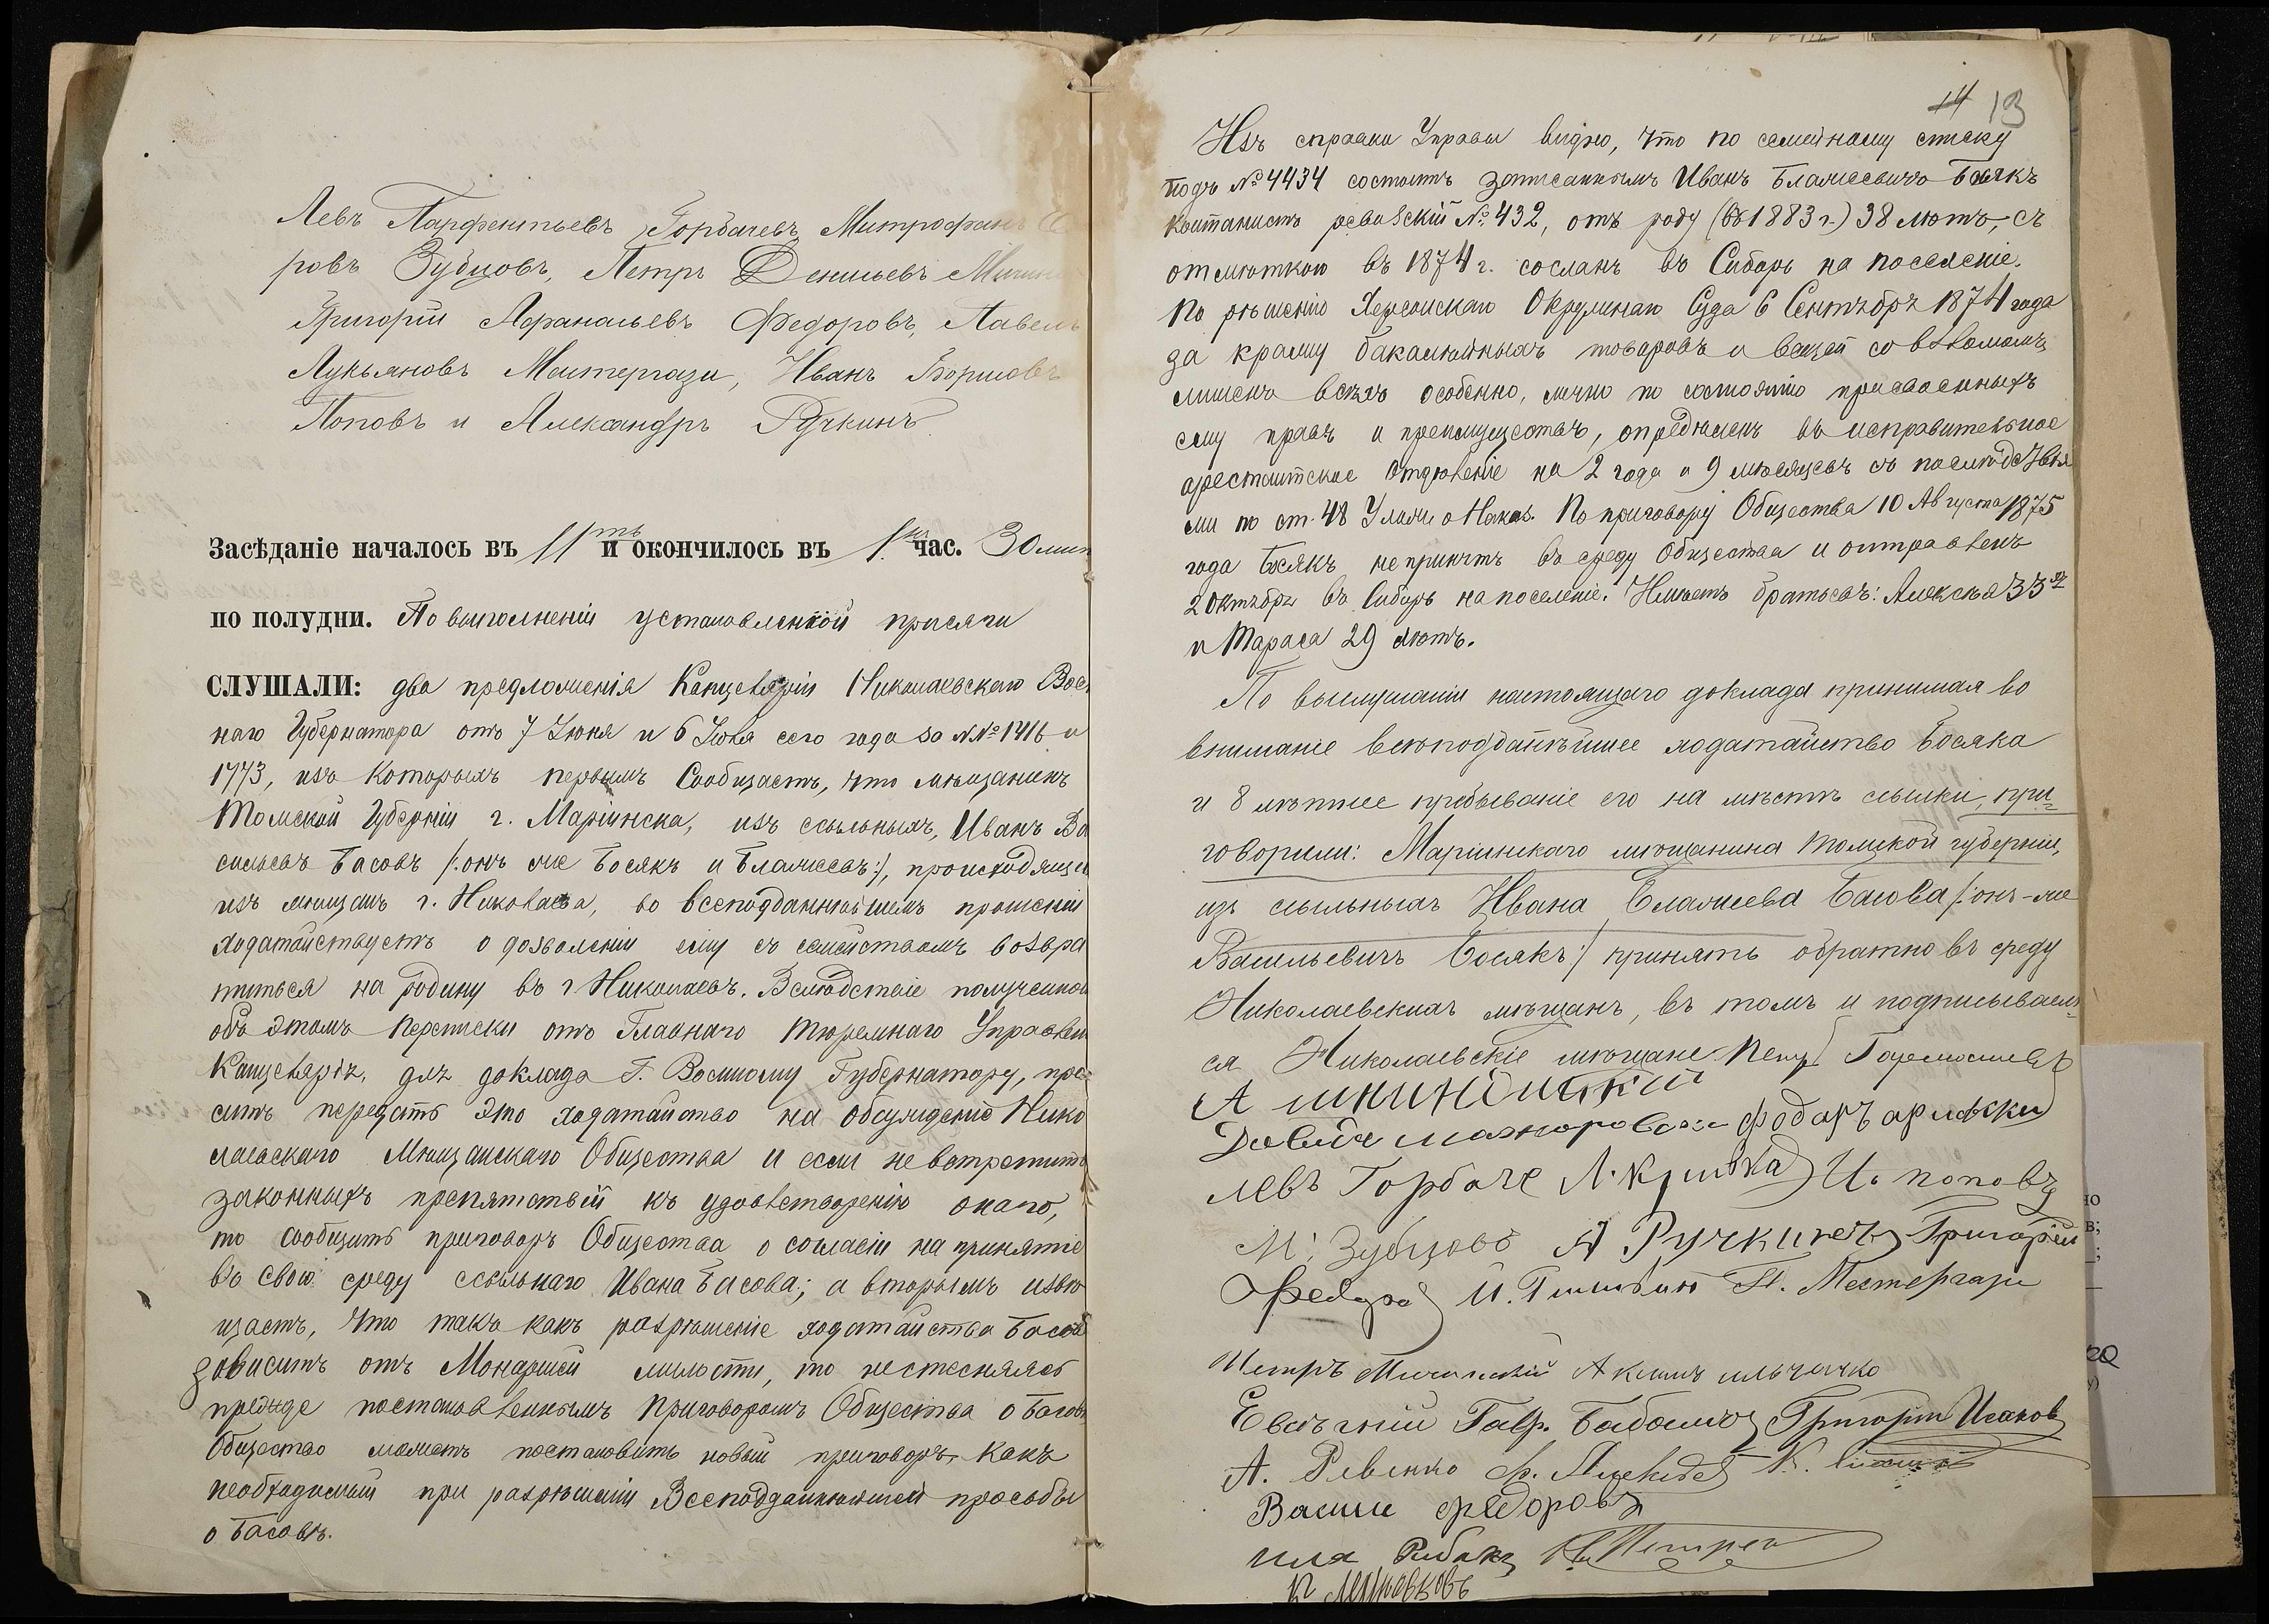 Левъ Парфентьевъ Горбачевъ, Митрофанъ
ровъ Зубцовъ, Петръ Денисьевъ
Григорій Афанасьевъ Федоровъ, Павелъ
Лукьяновъ Мастергази, Иванъ Борисовъ
Поповъ и Александръ Ручкинъ
Засѣданіе началось въ 11 и окончилось въ 1 час. 30 мин
по полудни. По выполненіи установленной присяги
СЛУШАЛИ: два предложенія Канцеляріи Николаевскаго Воен
наго Губернатора отъ 7 Іюня и 6 Іюля сего года за №№ 1416 и
1773, изъ которыхъ первымъ сообщаетъ, что мѣщанинъ
Томской Губерніи г. Маріинска, изъ ссыльныхъ, Иванъ Ва
сильевъ Басовъ /: онъ же Босякъ и Блажеевъ :/, происходящій
изъ мѣщанъ г. Николаева, во всеподданнѣйшемъ прошеніи
ходатайствуетъ о дозволеніи ему съ семействомъ возвра
титься на родину въ г. Николаевъ. Вслѣдствіе полученной
объ этомъ переписки отъ Главнаго Тюремнаго Управлен
Канцелярія, для доклада Г. Военному Губернатору, про
ситъ передать это ходатайство на обсужденіе Нико
лаевскаго Мѣщанскаго Общества и если не встретитъ
законныхъ препятствій къ удовлетворенію онаго,
то сообщить приговоръ Общества о согласіи на принятіе
въ свою среду ссыльнаго Ивана Басова; а вторымъ извѣ
щаетъ, что такъ какъ разрѣшеніе ходатайства Басова
зависитъ отъ Монаршей милости, то нестесняясь
прежде постановленнымъ приговоромъ Общества о Басовѣ
Общество можетъ постановить новый приговоръ, какъ
необходимый при разрѣшеніи Всеподданнѣйшей просьбы
о Басовѣ.
14 13
Изъ справки Управы видно, что по семейному списку
подъ № 4434 состоитъ записаннымъ Иванъ Блажеевичъ Босякъ
ревизскій № 432, отъ роду (въ 1883 г.) 38 лѣтъ, съ
отмѣткою въ 1874 г. сосланъ въ Сибирь на поселеніе.
По рѣшенію Херсонскаго Окружнаго Суда 6 Сентября 1874 года
за кражу бакалейныхъ товаровъ и вещей со взломомъ
лишенъ всѣхъ особенно, лично по состоянію присвоенныхъ
ему правъ и преимуществъ, опредѣленъ въ исправительное
арестантское отдѣленіе на 2 года и 9 мѣсяцевъ съ послѣдствія
ми по ст. 48 Улож. о Наказ. По приговору Общества 10 Августа 1875
года Босякъ непринятъ въ среду Общества и отправленъ
2 Октября въ Сибирь на поселеніе. Имѣетъ братьевъ: Алексѣя 33
и Тараса 29 лѣтъ.
По выслушаніи настоящаго доклада принимая во
вниманіе всеподданѣйшее ходатайство Босяка
и 8 лѣтнее пребываніе его на мѣстѣ ссылки, при=
говорили: Маріинскаго мѣщанина Томской губерніи,
изъ ссыльныхъ Ивана Блажеева Басова /: онъ-же
Васильевичъ Босякъ :/ принять обратно въ среду
Николаевскихъ мѣщанъ, въ томъ и подписываем=
ся Николаевскіе мѣщане
левъ Горбаче И. поповъ
М. Зубцовъ А Ручкинъ Григорій
Федоро П. Мастергази
Петръ Акимъ
Гавр. Григорій Исаковъ
А. Ревенко
Васили федоровъ
иля Рибакъ